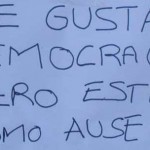 E GUSTA
EMOCRAC
ERO ESTE
OMO AUSE